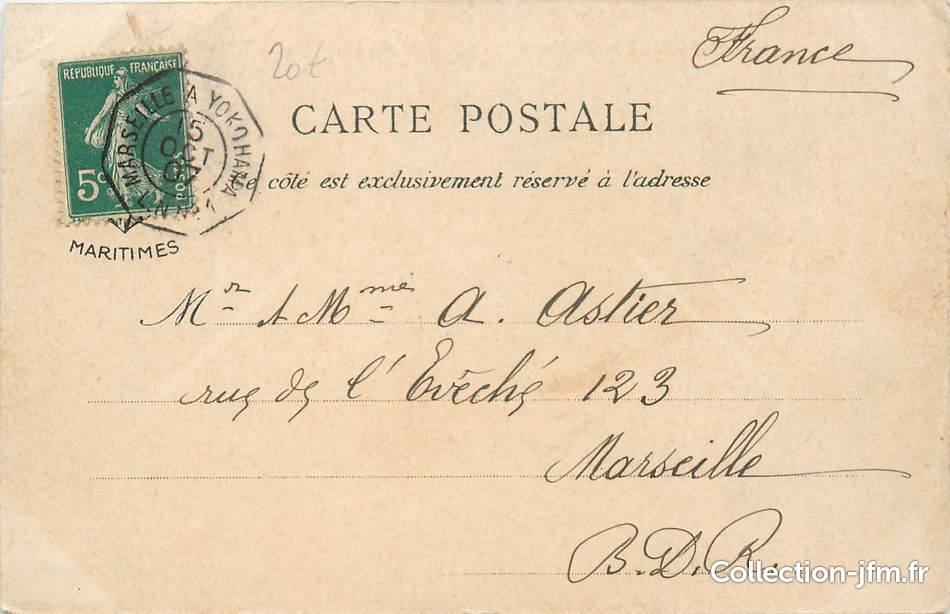 France
20f
RÉPUBLIQUE FRANÇAISE
5c
POSTES
MARSEILLE A YOKOHAMA
15
OCT
07
L.N N° 1
MARITIMES
CARTE POSTALE
Ce côté est exclusivement réservé à l'adresse
Mr et Mme A. Astier
rue de l'Evêché 123
Marseille
B.D.R.
Collection-jfm.fr